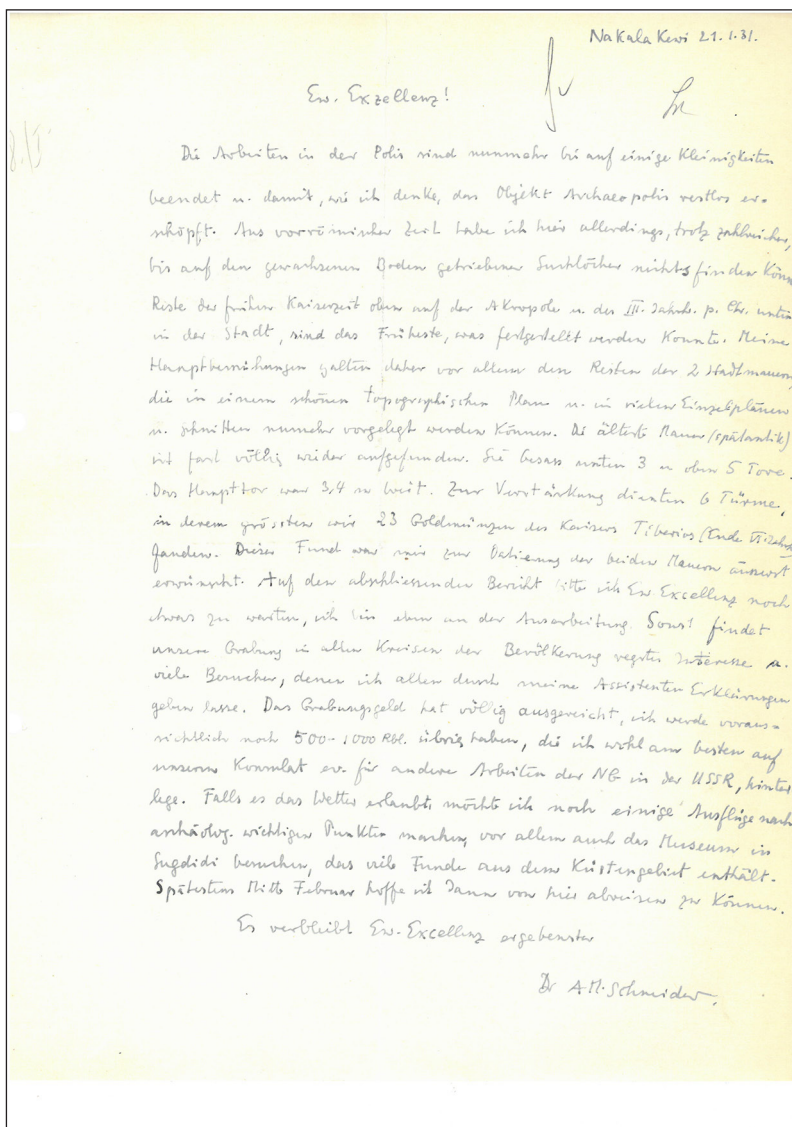 Nakalakewi 21.1.31.
Ew. Exzellenz!
Die Arbeiten in der Polis sind nunmehr bis auf einige Kleinigkeiten
beendet u. damit, wie ich denke, das Objekt Archaeopolis restlos er-
schöpft. Aus vorrömischer Zeit habe ich hier allerdings, trotz zahlreicher,
bis auf den gewachsenen Boden getriebener Suchlöcher nichts finden könn
Reste der frühen Kaiserzeit oben auf der Akropole u. des III. Jahrh. p. Chr. unten
in der Stadt, sind das Früheste, was festgestellt werden konnte. Meine
Hauptbemühungen galten daher vor allem den Resten der 2 Stadtmauern,
die in einem schönen topographischen Plan u. in vielen Einzelplänen
u. schnitten nunmehr vorgelegt werden können. Die älteste Mauer (spätantik)
ist fast völlig wieder aufgefunden. Sie besass unten 3 u. oben 5 Tore.
Das Haupttor war 3,4 m weit. Zur Verstärkung dienten 6 Türme,
in derem grössten wir 23 Goldmünzen des Kaisers Tiberios (Ende VI. Jahrh
fanden. Dieser Fund war mir zur Datierung der beiden Mauern äusserst
erwünscht. Auf den abschliessenden Bericht bitte ich Ew Excellenz noch
etwas zu warten, ich bin eben an der Ausarbeitung. Sonst findet
unsere Grabung in allen Kreisen der Bevölkerung regstes Interesse u.
viele Besucher, denen ich allen durch meine Assistenten Erklärungen
geben lasse. Das Grabungsgeld hat völlig ausgereicht, ich werde voraus-
sichtlich noch 500-1000 Rbl. übrig haben, die ich wohl am besten auf
unserm Konsulat ev. für andere Arbeiten der NG in der USSR, hinter
lege. Falls es das Wetter erlaubt, möchte ich noch einige Ausflüge nach
archäolog. wichtigen Punkten machen, vor allem auch das Museum in
Sugdidi besuchen, das viele Funde aus dem Küstengebiet enthält.
Spätestens Mitte Februar hoffe ich dann von hier abreisen zu können.
Es verbleibt Ew. Excellenz ergebenster
Dr A.M. Schneider.